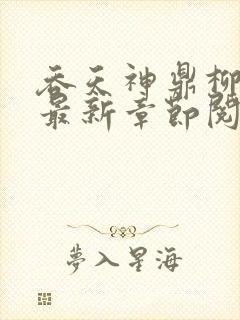 吞天神鼎柳
最新章節閱
夢入星海